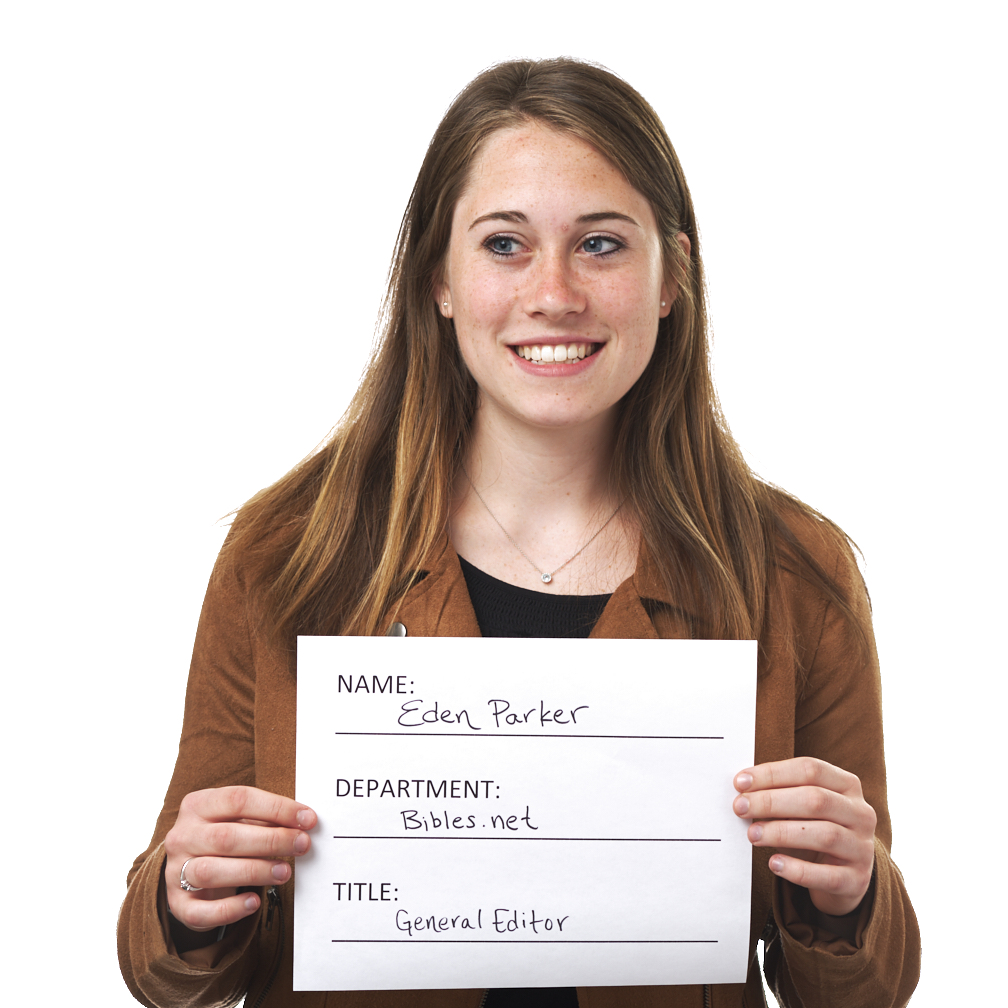 NAME:
Eden Parker
DEPARTMENT:
Bibles.net
TITLE:
General Editor